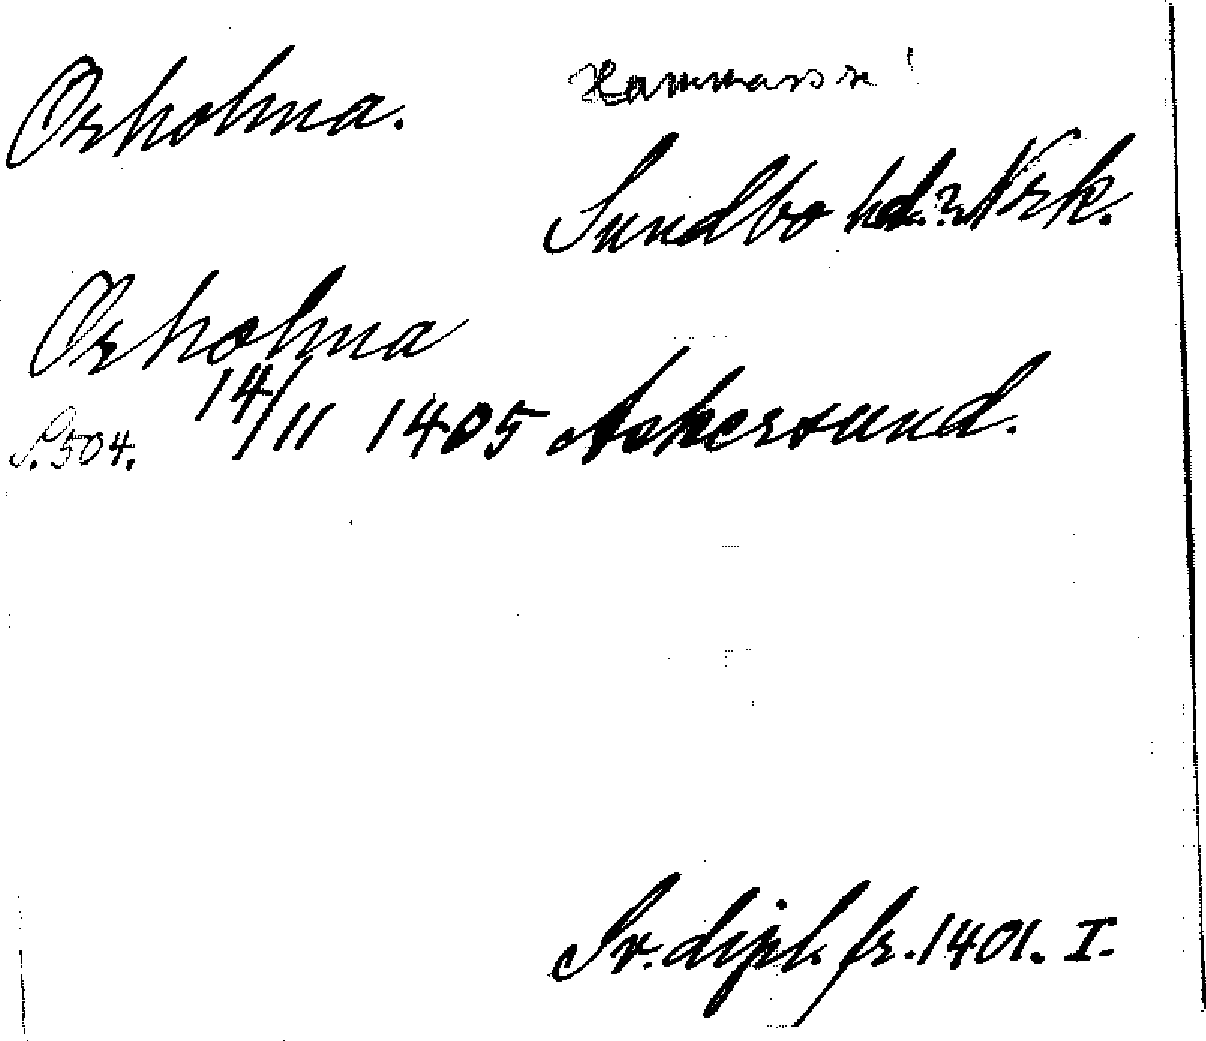 Orholma. Hammars sn!
Sundbo hd.? Nrk.
Orholma
S. 504. 14/11 1405 Askersund.
Sv. dipl. fr. 1401. I.